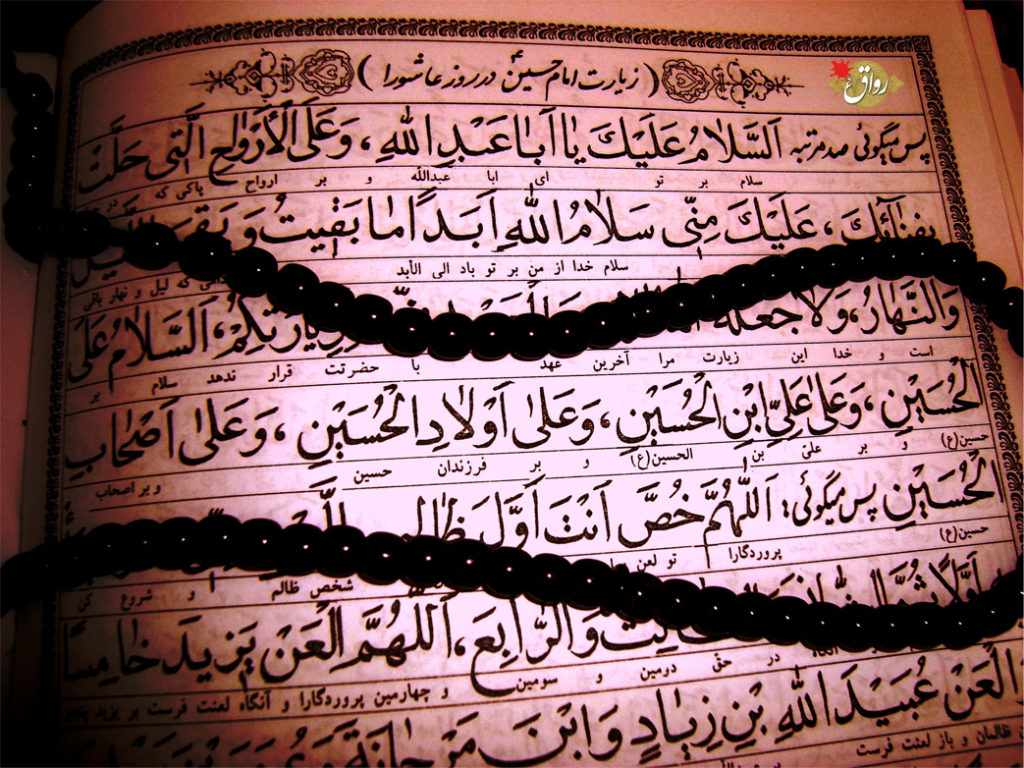 ( زیارت امام حسین ع در روز عاشورا )
رواق
پس میگوئی صد مرتبه اَلسَّلامُ عَلَيْكَ يا اَبا عَبْدِ اللهِ، وَ عَلَى الْاَرْواحِ الَّتى حَلَّتْ
سلام بر تو ای ابا عبدالله و بر ارواح پاکی که در
بِفِنائِكَ، عَلَيْكَ مِنّى سَلامُ اللهِ اَبَداً ما بَقيتُ وَ بَقِىَ
سلام خدا از من بر تو باد الی الأبد که لیل و نهار باقی
وَالنَّهارُ، وَلا جَعَلَهُ زِيارَتِكُمْ، اَلسَّلامُ عَلَى
است و خدا این زیارت مرا آخرین عهد با حضرتت قرار ندهد سلام بر
الْحُسَيْنِ، وَ عَلى عَلِىِّ ابْنِ الْحُسَيْنِ، وَ عَلى اَوْلادِ الْحُسَيْنِ، وَ عَلى اَصْحابِ
حسین(ع) و بر علیّ بن الحسین(ع) و بر فرزندان حسین و بر اصحاب
الْحُسَيْنِ پس میگوئی: اَللّهُمَّ خُصَّ اَنْتَ اَوَّلَ ظالِمٍ
حسین(ع) پروردگارا تو لعن
اَوَّلاً
شخص ظالم و شروع کن
وَالرّابِعَ، اَللّهُمَّ الْعَنْ يَزيدَ خامِساً
در حقّ دومین و سومین و چهارمین پروردگارا و آنگاه لعنت فرست بر یزید
الْعَنْ عُبَيْدَ اللهِ بْنَ زِيادٍ وَابْنَ مَرْجانَةَ
ظالمان و باز لعنت فرست